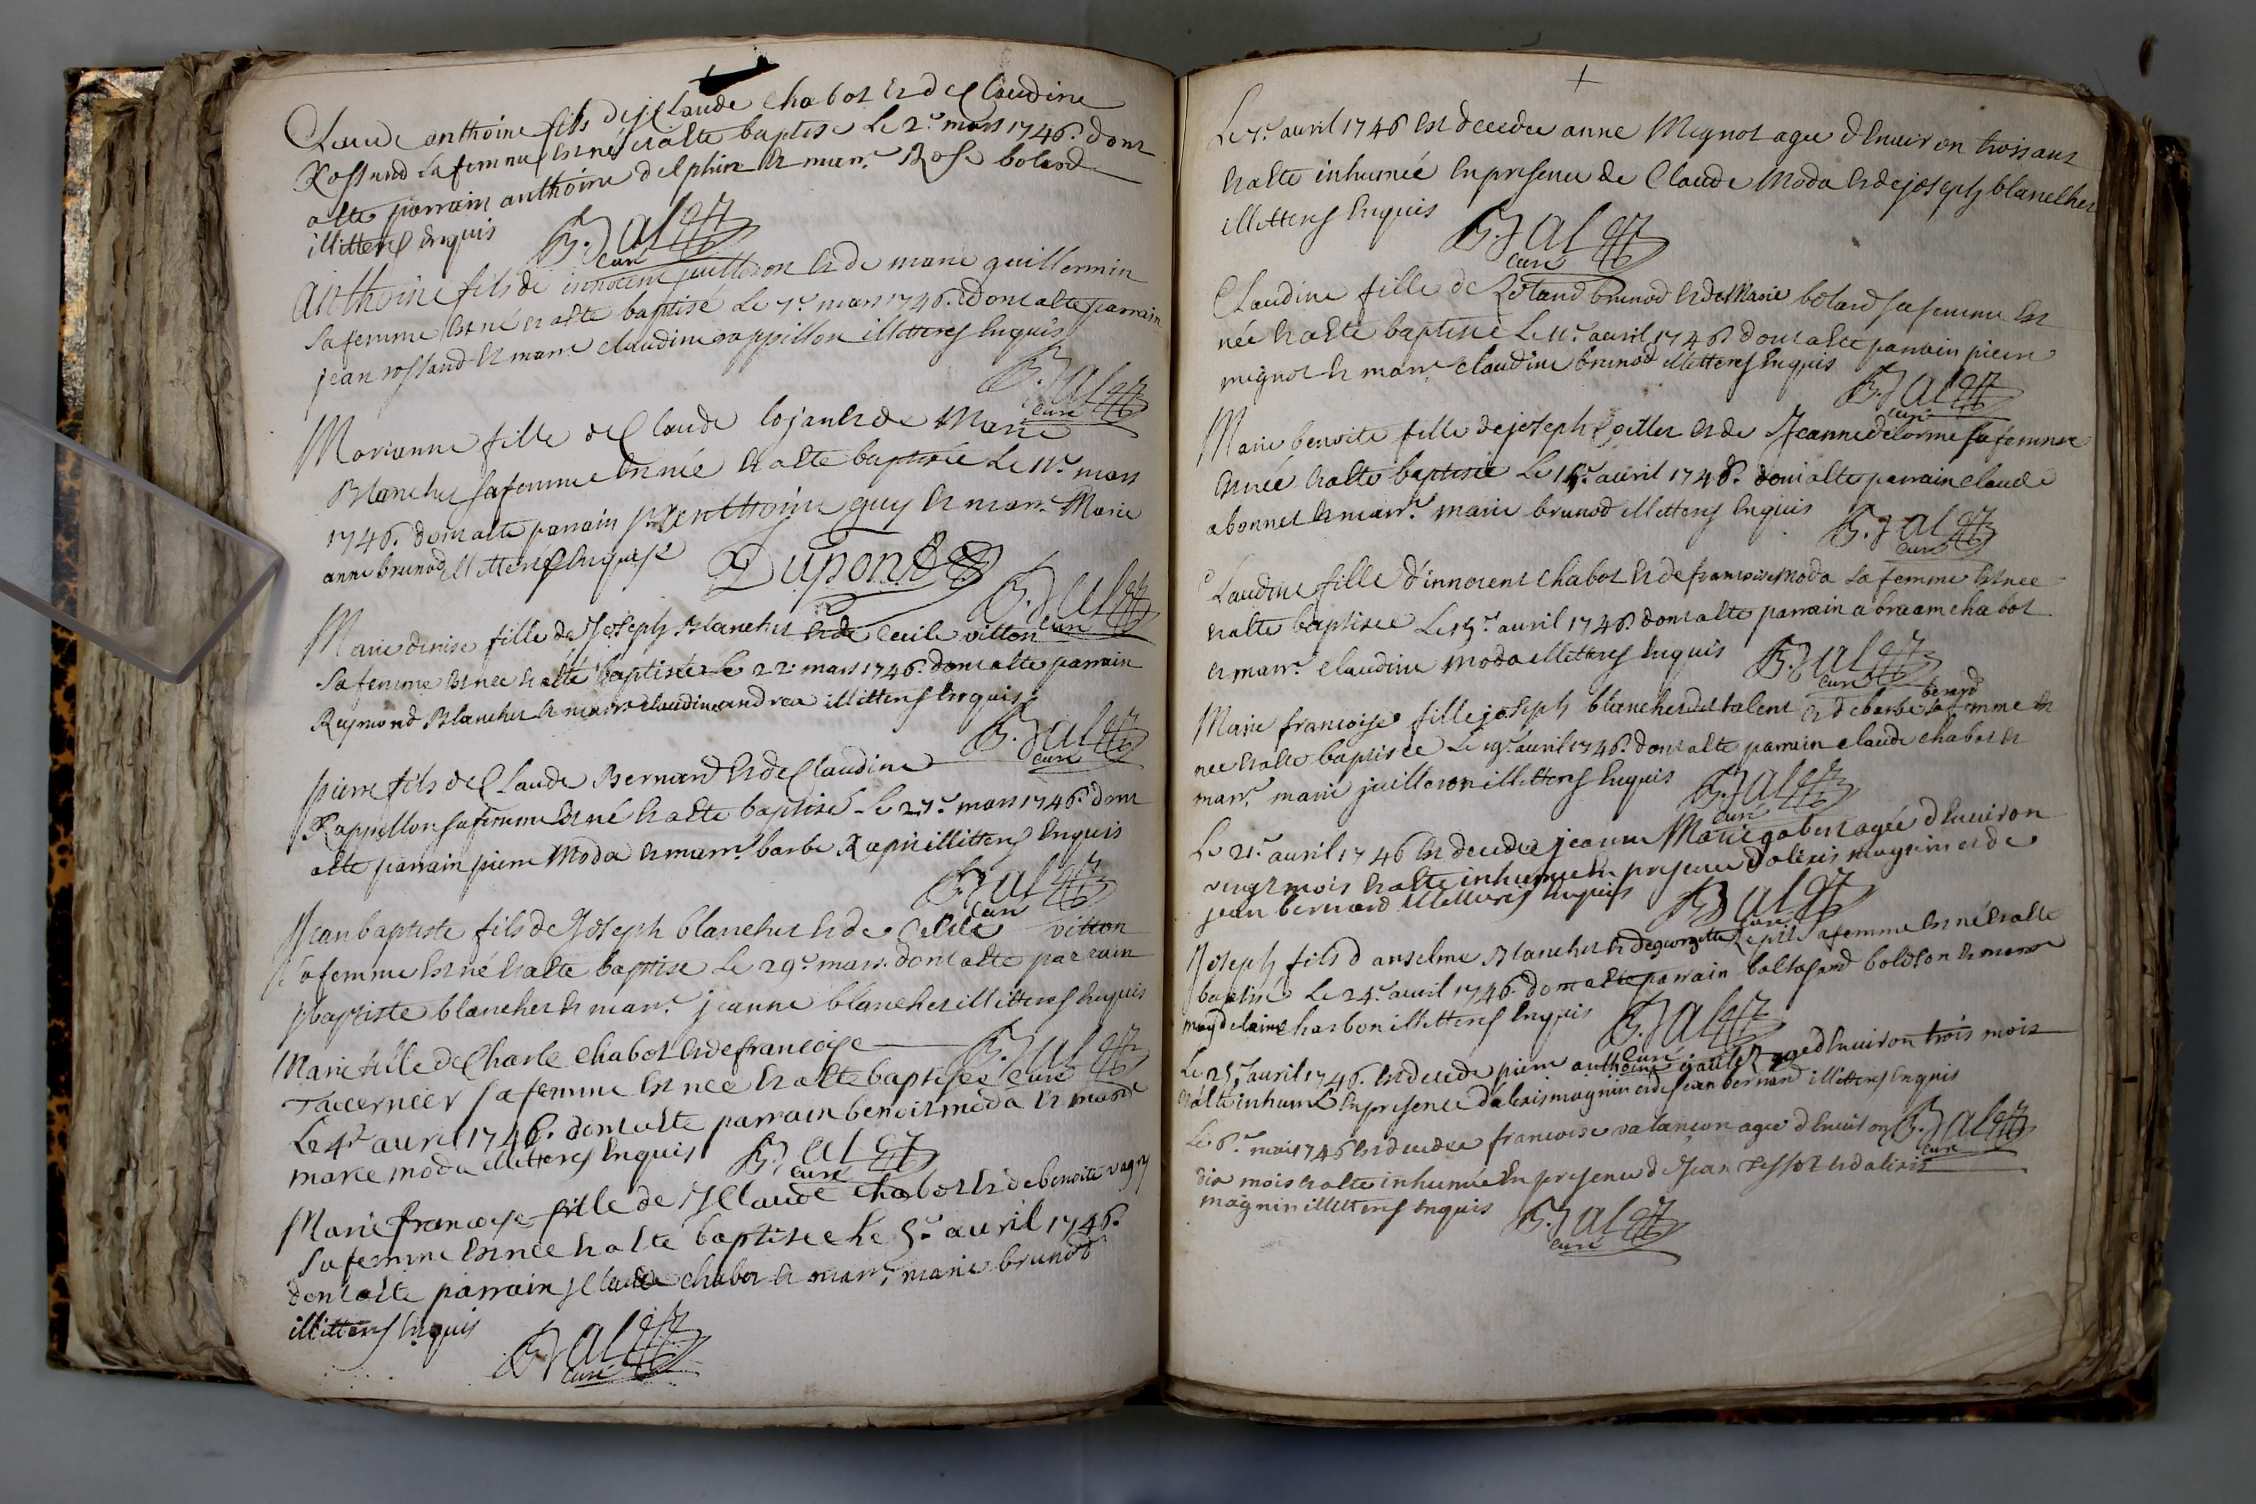 Claude anthoine fils de jClaude chabot et de Claudine
Rossand sa femme est né et a ete baptise Le 2e mars 1746. dont
a ete parrain anthoine delphin et marr.e Rose bolard
illitterés enquis
B. Jal
curé
anthoine fils de innocent juilleron et de marie guillermin
sa femme est né et a ete baptisé Le 7e mars 1746. dont a ete parrain
jean rossand et marr.e claudine rappillon illitteres enquis
B. Jal
curé
Marianne fille de Claude lojan et de Marie
Blanchet sa femme est née et a ete baptisée Le 11e mars
1746. dont a ete parrain anthoine guy et marr.e Marie
anne brunod illitteres enquis
Dupont
B. Jal
curé
Marie denise fille de Joseph Blanchet et de Cecile vitton
sa femme est nee et a eté baptisée Le 22e mars 1746. dont a ete parrain
Raymond Blanchet et marr.e claudine andrea illitteres enquis
B. Jal
curé
pierre fils de Claude Bernard et de Claudine
Rappillon sa femme est né et a ete baptisé Le 27e mars 1746. dont
a ete parrain pierre Moda et marr.e barbe Rapin illitteres enquis
B. Jal
curé
Jean baptiste fils de Joseph blanchet et de Cecile vitton
sa femme est né et a ete baptise Le 29e mars. dont a ete parrain
baptiste blanchet et marr.e jeanne blanchet illitteres enquis
B. Jal
curé
Marie fille de Charle chabot et de francoise
Tavernier sa femme est nee et a ete baptisee
Le 4e avril 1746. dont a ete parrain benoit moda et marr.e
marie moda illitteres enquis
B. Jal
curé
Marie francoise fille de JClaude chabot et de benoite vagny
sa femme est nee et a ete baptisee Le 5e avril 1746.
dont a ete parrain jClaude chabot et marr.e marie brunod
illitteres enquis
B. Jal
curé
Le 7e avril 1746 est decedee anne Mignot agee d'Environ trois ans
et a ete inhumée en presence de Claude Moda et de joseph blanchet
illitteres enquis
B. Jal
curé
Claudine fille de Roland brunod et de Marie bolard sa femme est
née et a ete baptisee Le 11e avril 1746 dont a ete parrain pierre
mignot et marr.e claudine brunod illitteres enquis
B. Jal
curé
Marie benoite fille de joseph et de Jeanne delorme sa femme
est née et a ete baptisée Le avril 1746. dont a ete parrain claude
abonnel et marr.e marie brunod illitteres enquis
B. Jal
curé
Claudine fille d'innocent chabot et de francoise moda sa femme est nee
et a ete baptisee Le avril 1746. dont a ete parrain abraam chabot
et marr.e claudine moda illitteres enquis
B. Jal
curé
berard
Marie francoise fille joseph blanchet dit talent et de barbe sa femme est
nee et a ete baptisee Le 19e avril 1746. dont a ete parrain claude chabot et
marr.e marie juilleron illitteres enquis
B. Jal
curé
Le 21e avril 1746 est decedee jeanne Marie gobert agée d'Environ
vingt mois et a ete inhumee en presence d'alexis magnin et de
jean bernard illitteres enquis
B. Jal
curé
Joseph fils d'anselme Blanchet et de georgette sa femme est né et a ete
baptise Le 24e avril 1746. dont a ete parrain baltasard boleson et marr.e
magdelaine charbon illitteres enquis
B. Jal
curé
Le 25e avril 1746. est decede pierre anthoine agé d'Environ trois mois
et a ete inhumé en presence d'alexis magnin et de jean bernard illitteres enquis
B. Jal
curé
Le 6e mai 1746 est decedee francoise valançon agee d'Environ
dix mois et a ete inhumée en presence de Jean Tissot et d'alexis
magnin illitteres enquis
B. Jal
curé